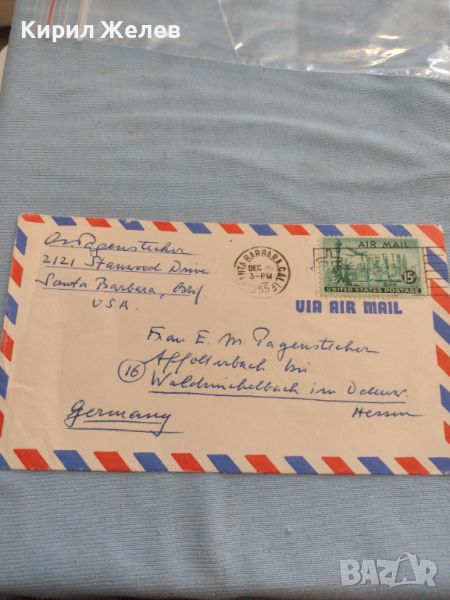 Кирил Желев
O. Pagenstecher
2121 Stanwood Drive
Santa Barbara, Calif
USA.
SANTA BARBARA, CALIF.
DEC
3-PM
1955
AIR MAIL
15¢
UNITED STATES POSTAGE
VIA AIR MAIL
Frau E. M. Pagenstecher
Affolterbach bei
(16) Waldmichelbach im Odenw.
Hessen
Germany
BAZAR